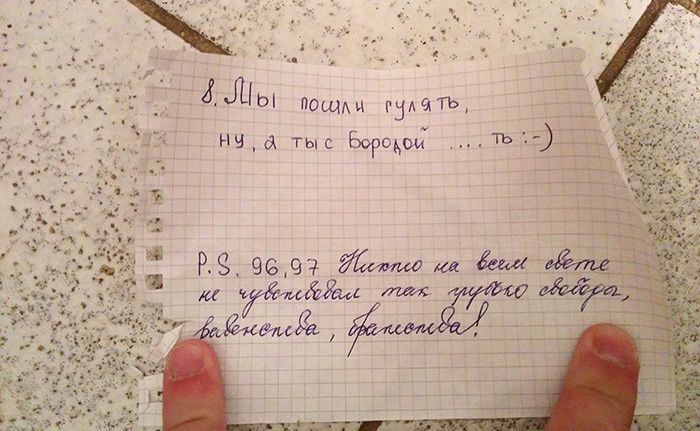 8. Мы пошли гулять,
ну, а ты с Бородой .... ть :-)
P.S. 96,97 Никто на всем свете
не чувствовал так глубоко свободы,
равенства, братства!